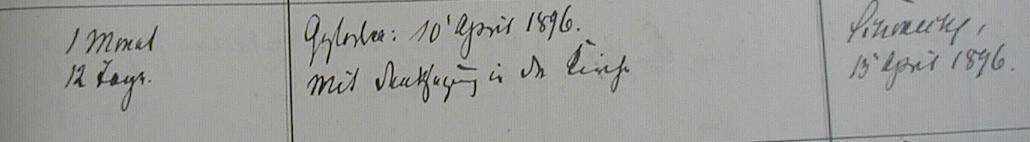 1 Monat
12 Tage.
Gestorben: 10' April 1896.
Mit Danksagung in der Kirche
15' April 1896.